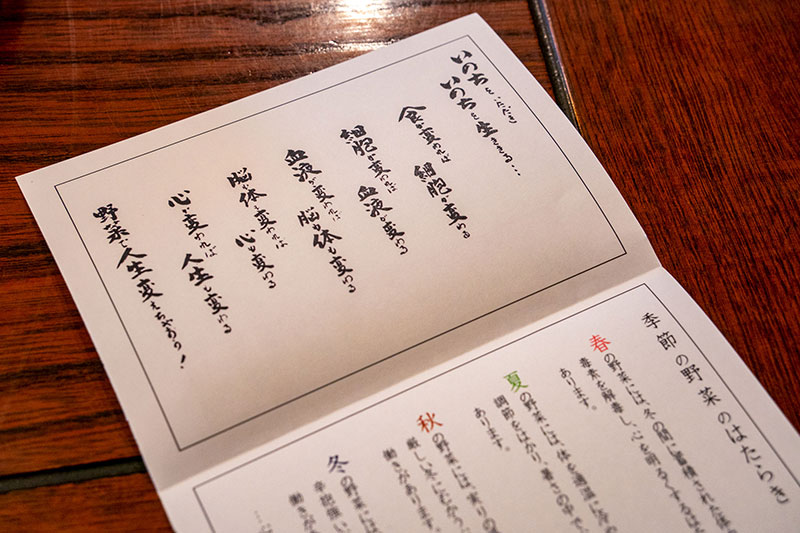 いのちをいただき
いのちを生きる…
食が変われば
細胞が変わる
細胞が変われば
血液が変わる
血液が変われば
脳も体も変わる
脳も体も変われば
心も変わる
心も変われば
人生も変わる
野菜で人生変えちゃおう！
季節の野菜のはたらき
春の野菜には、冬の間に蓄積された
毒素を解毒し、心を明るくするは
あります。
夏の野菜には、体を適温に
調節をはかり、暑さの中で
あります。
秋の野菜には、実りの
厳しい冬にむかう
働きがあります。
冬の野菜には
辛抱強い
働きが